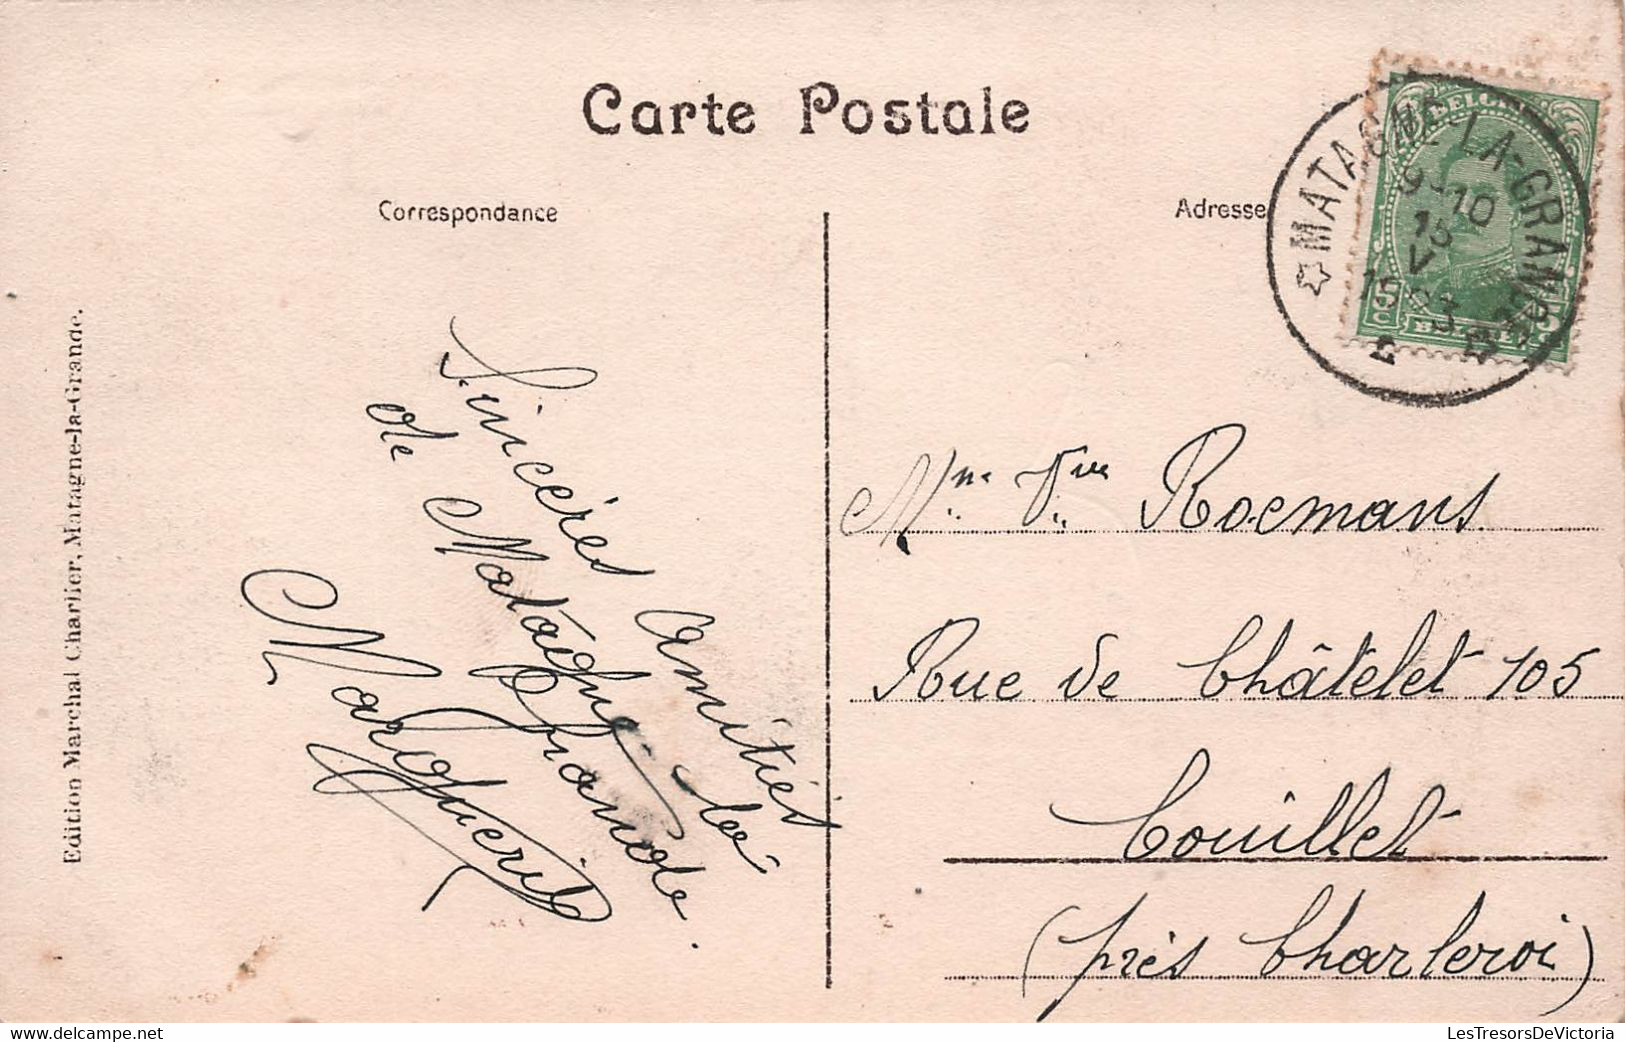 Carte Postale
Correspondance
Adresse
Edition Marchal Charlier, Matagne-la-Grande.
Sincères amitiés
de Matagne-la-
Grande.
Marguerite
Mme Vve Roemans
Rue de Châtelet 105
Couillet
(près Charleroi)
MATAGNE-LA-GRANDE
9-10
15
V
1923
5c
BELGIË
LesTresorsDeVictoria